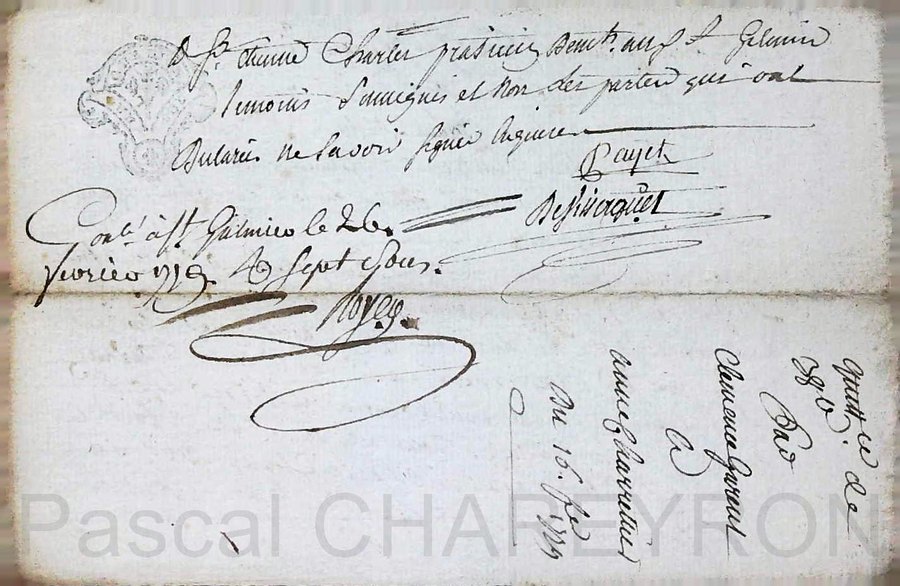 & Sr. Etienne Charles praticien demt. aud St Galmier
temoins soussignés et non les parties qui ont
declarés ne savoir signer enquise
Payet
Contlé à St Galmier le 26.
fevrier 1779 R sept sous.
Royer
quittce de
Par
Clemence Garont
à
anne Charretier
Du 16. fer 1779
Pascal CHAREYRON